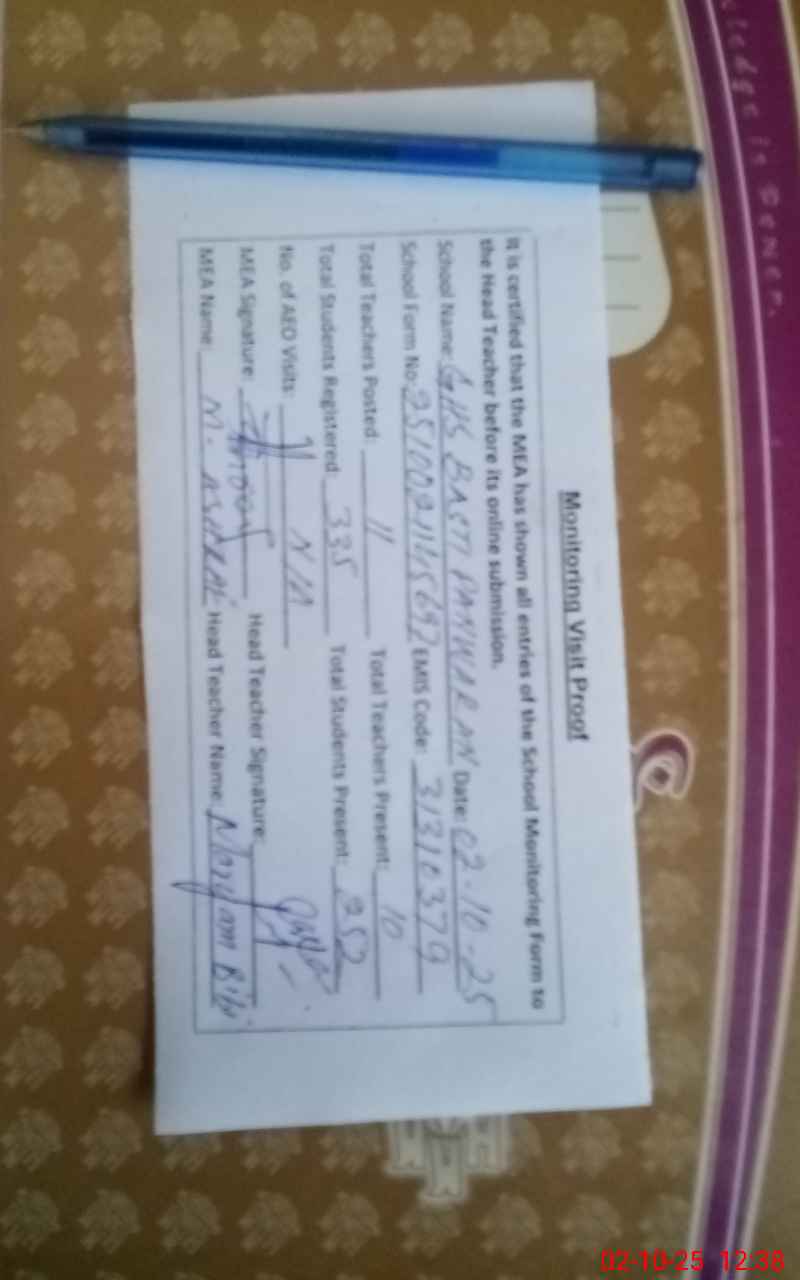 Monitoring Visit Proof
It is certified that the MEA has shown all entries of the School Monitoring Form to
the Head Teacher before its online submission.
School Name: GHS BASTI PANWARAN Date: 02-10-25
School Form No: EMIS Code: 31310379
Total Teachers Posted: 11 Total Teachers Present: 10
Total Students Registered: 335 Total Students Present: 252
No. of AEO Visits: N/A
MEA Signature: Head Teacher Signature:
MEA Name: M. Head Teacher Name: Maryam Bibi
02-10-25 12:38